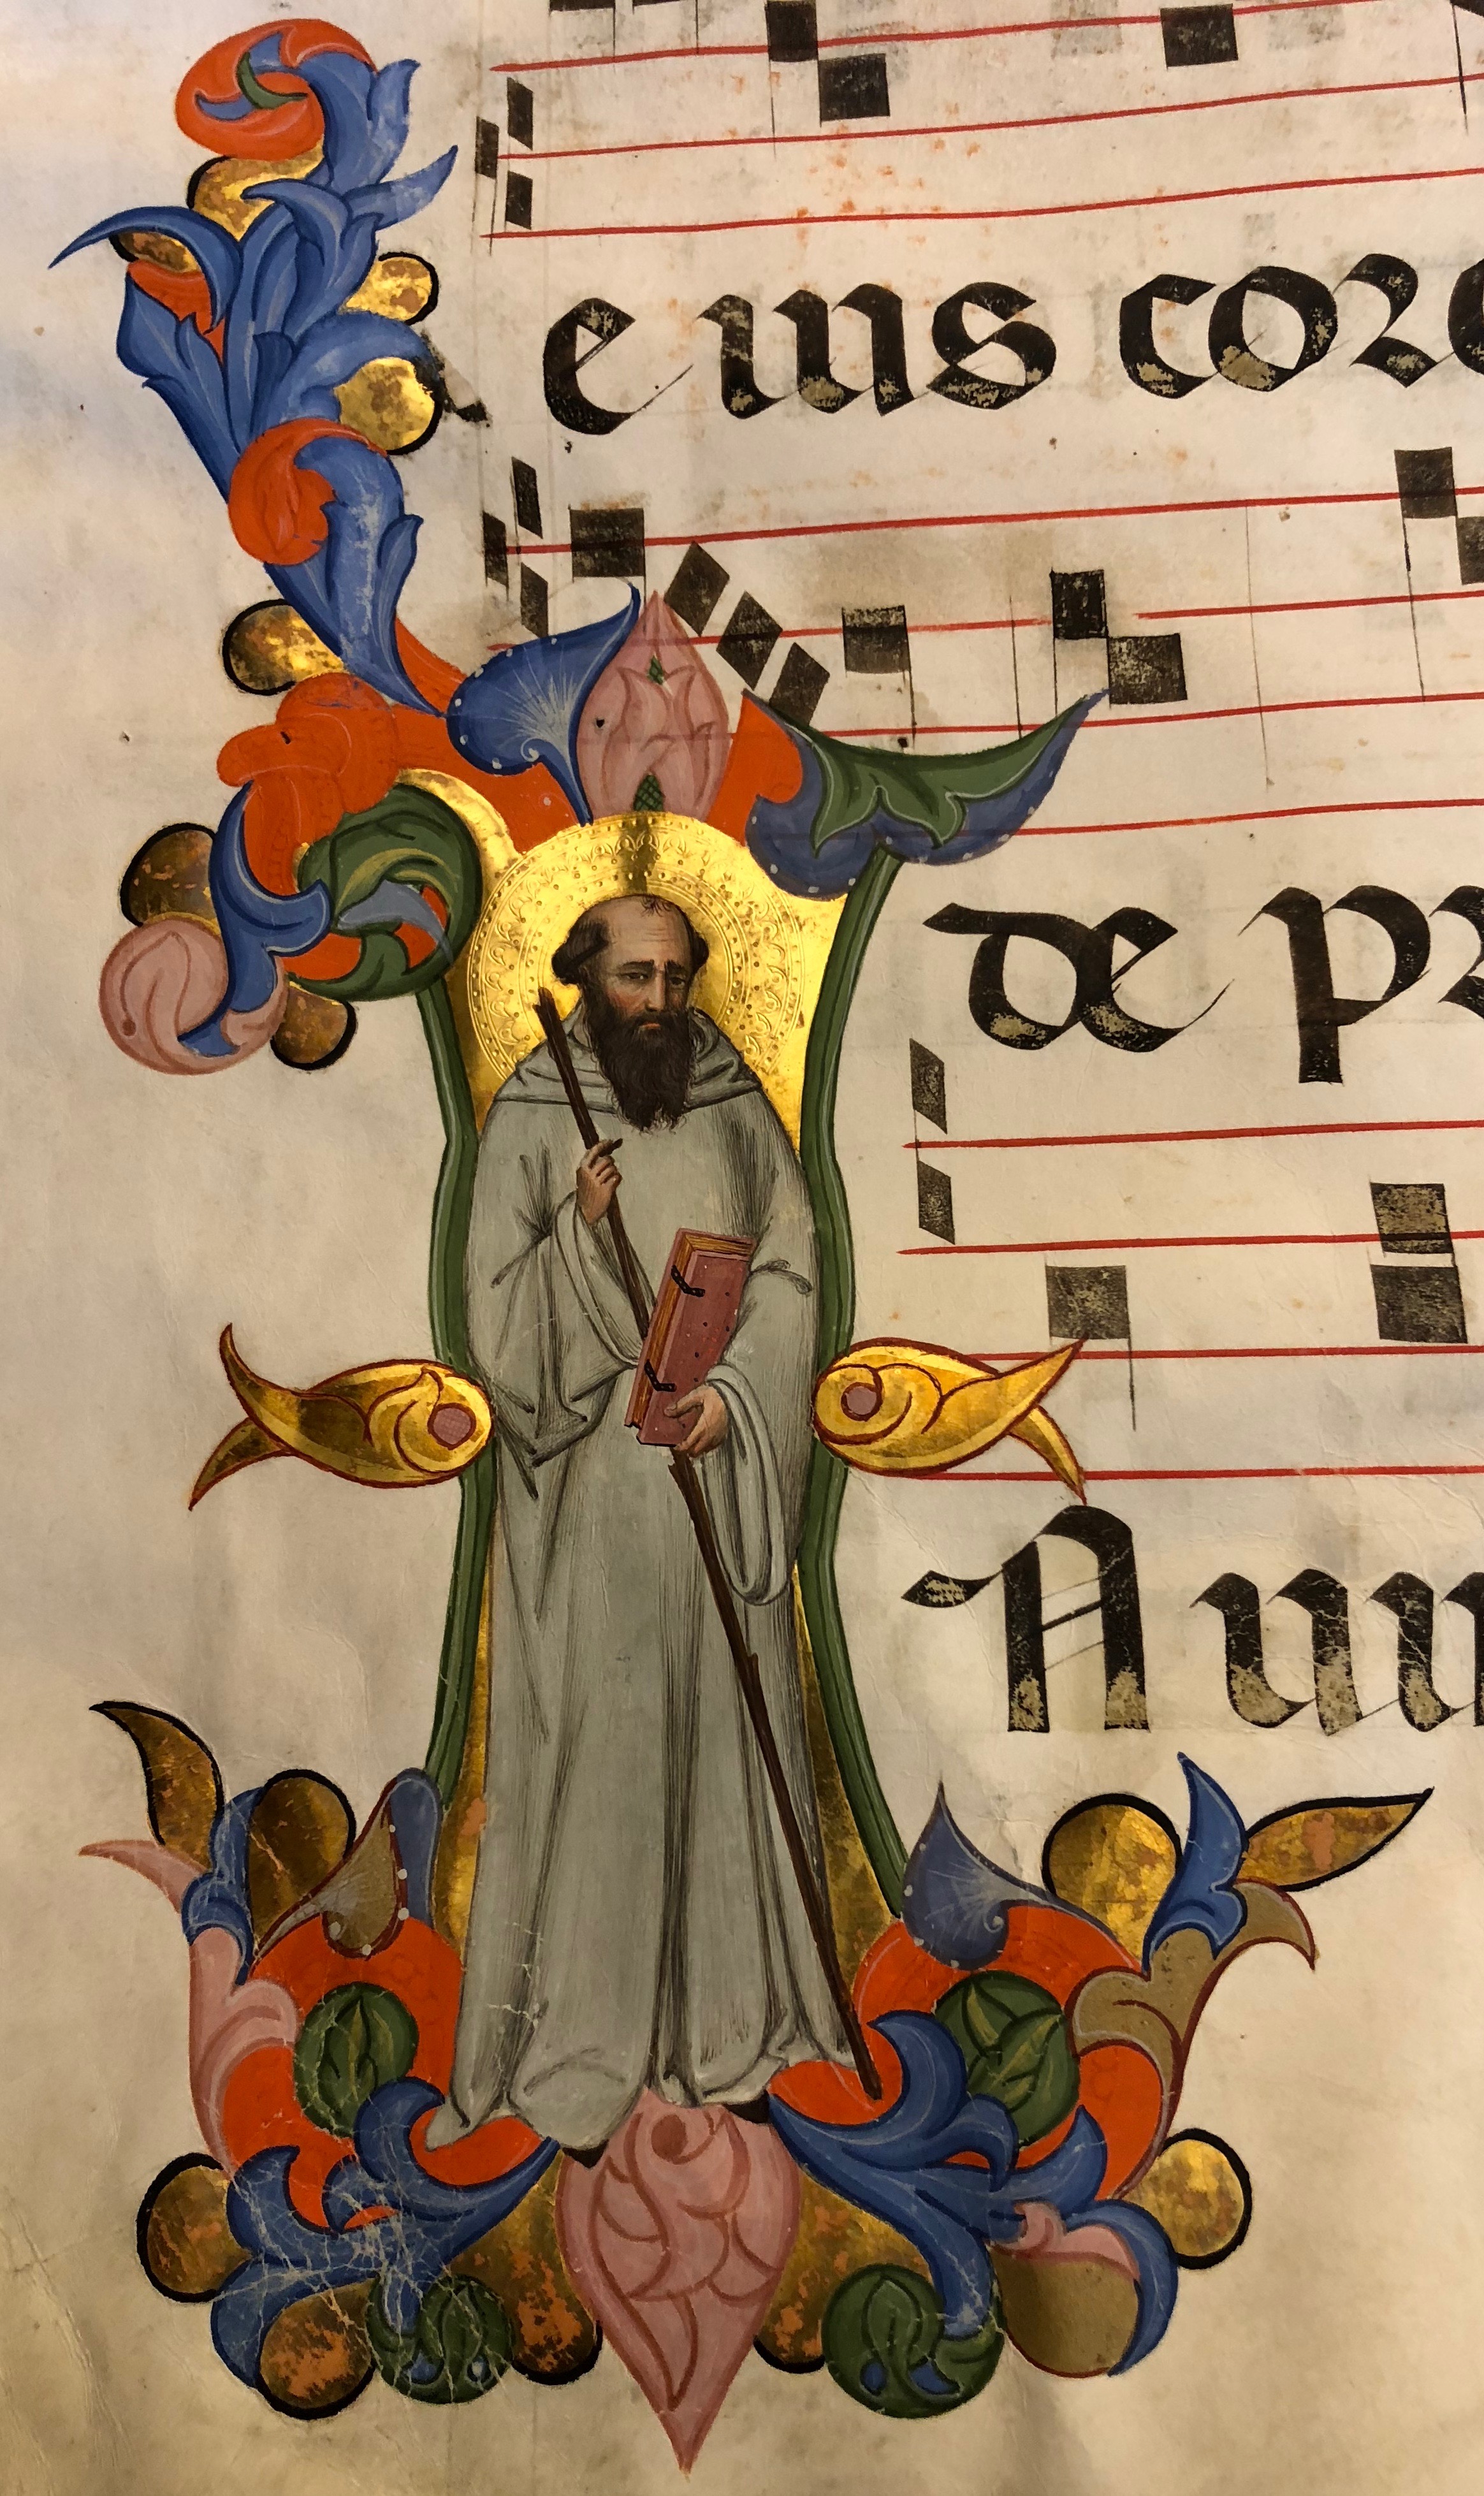 e ius coro
de pr
Aum